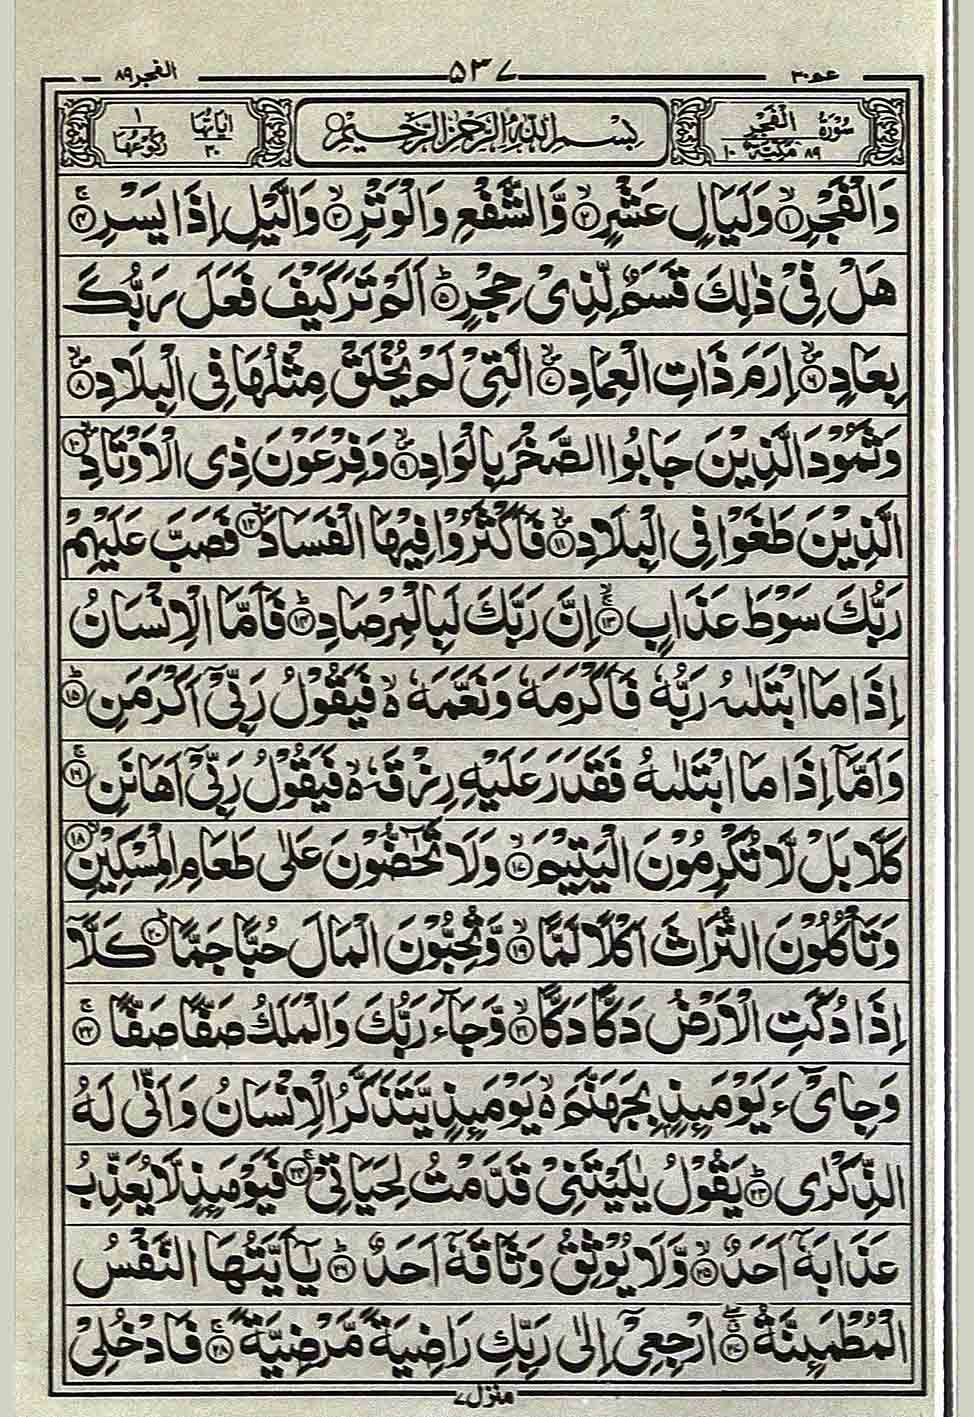 عم ٣٠ ٥٣٧ الفجر ٨٩
سورة الفجر ٨٩ مكية ١٠ بِسْمِ اللهِ الرَّحْمٰنِ الرَّحِيْمِ اٰيَاتُهَا ٣٠ رُكُوْعُهَا ١
وَالْفَجْرِ ۙ﴿١﴾ وَلَيَالٍ عَشْرٍ ۙ﴿٢﴾ وَّالشَّفْعِ وَالْوَتْرِ ۙ﴿٣﴾ وَالَّيْلِ اِذَا يَسْرِ ۚ﴿٤﴾
هَلْ فِيْ ذٰلِكَ قَسَمٌ لِّذِيْ حِجْرٍ ؕ﴿٥﴾ اَلَمْ تَرَ كَيْفَ فَعَلَ رَبُّكَ
بِعَادٍ ۙ﴿٦﴾ اِرَمَ ذَاتِ الْعِمَادِ ۙ﴿٧﴾ الَّتِيْ لَمْ يُخْلَقْ مِثْلُهَا فِي الْبِلَادِ ۙ﴿٨﴾
وَثَمُوْدَ الَّذِيْنَ جَابُوا الصَّخْرَ بِالْوَادِ ۙ﴿٩﴾ وَفِرْعَوْنَ ذِي الْاَوْتَادِ ۙ﴿١٠﴾
الَّذِيْنَ طَغَوْا فِي الْبِلَادِ ۙ﴿١١﴾ فَاَكْثَرُوْا فِيْهَا الْفَسَادَ ۙ﴿١٢﴾ فَصَبَّ عَلَيْهِمْ
رَبُّكَ سَوْطَ عَذَابٍ ۚ﴿١٣﴾ اِنَّ رَبَّكَ لَبِالْمِرْصَادِ ؕ﴿١٤﴾ فَاَمَّا الْاِنْسَانُ
اِذَا مَا ابْتَلٰىهُ رَبُّهٗ فَاَكْرَمَهٗ وَنَعَّمَهٗ ۙ فَيَقُوْلُ رَبِّيْٓ اَكْرَمَنِ ؕ﴿١٥﴾
وَاَمَّآ اِذَا مَا ابْتَلٰىهُ فَقَدَرَ عَلَيْهِ رِزْقَهٗ ۙ فَيَقُوْلُ رَبِّيْٓ اَهَانَنِ ۚ﴿١٦﴾
كَلَّا بَلْ لَّا تُكْرِمُوْنَ الْيَتِيْمَ ۙ﴿١٧﴾ وَلَا تَحٰٓضُّوْنَ عَلٰى طَعَامِ الْمِسْكِيْنِ ۙ﴿١٨﴾
وَتَاْكُلُوْنَ التُّرَاثَ اَكْلًا لَّمًّا ۙ﴿١٩﴾ وَّتُحِبُّوْنَ الْمَالَ حُبًّا جَمًّا ؕ﴿٢٠﴾ كَلَّآ
اِذَا دُكَّتِ الْاَرْضُ دَكًّا دَكًّا ۙ﴿٢١﴾ وَّجَآءَ رَبُّكَ وَالْمَلَكُ صَفًّا صَفًّا ۚ﴿٢٢﴾
وَجِايْٓءَ يَوْمَىِٕذٍۭ بِجَهَنَّمَ ۙ يَوْمَىِٕذٍ يَّتَذَكَّرُ الْاِنْسَانُ وَاَنّٰى لَهُ
الذِّكْرٰى ؕ﴿٢٣﴾ يَقُوْلُ يٰلَيْتَنِيْ قَدَّمْتُ لِحَيَاتِيْ ۚ﴿٢٤﴾ فَيَوْمَىِٕذٍ لَّا يُعَذِّبُ
عَذَابَهٗٓ اَحَدٌ ۙ﴿٢٥﴾ وَّلَا يُوْثِقُ وَثَاقَهٗٓ اَحَدٌ ؕ﴿٢٦﴾ يٰٓاَيَّتُهَا النَّفْسُ
الْمُطْمَىِٕنَّةُ ۖ﴿٢٧﴾ ارْجِعِيْٓ اِلٰى رَبِّكِ رَاضِيَةً مَّرْضِيَّةً ۚ﴿٢٨﴾ فَادْخُلِيْ
منزل ٧